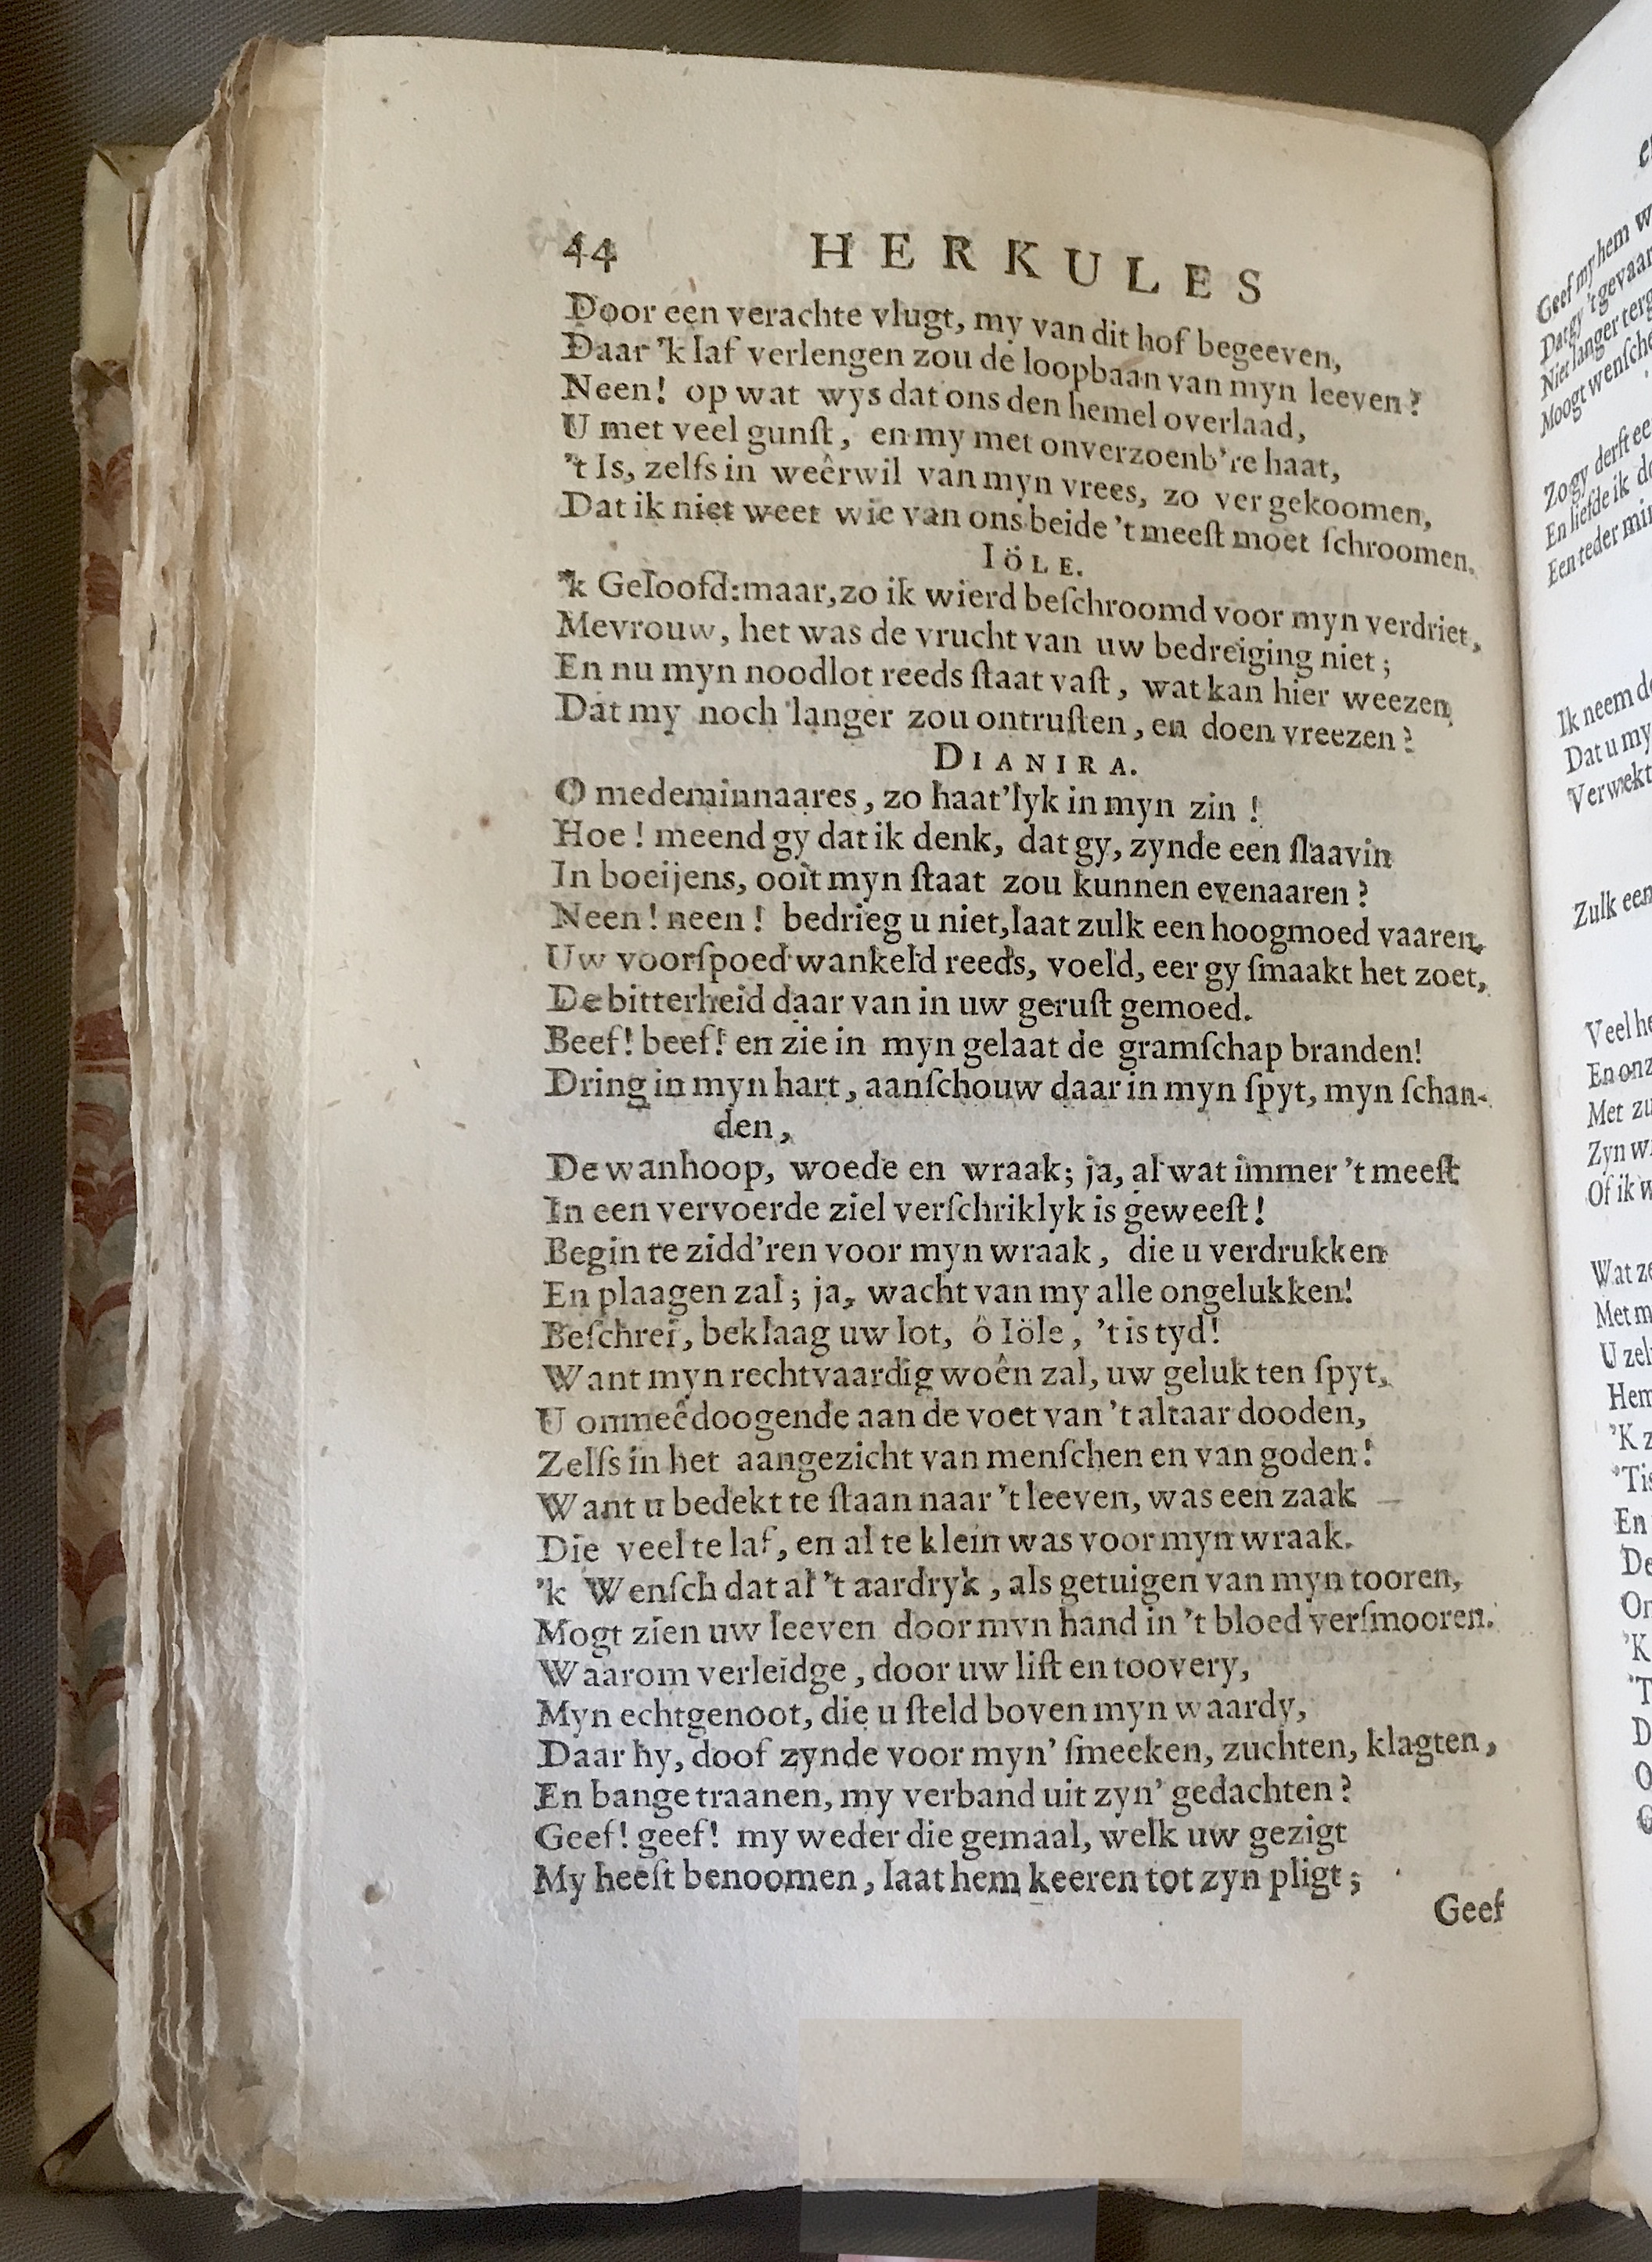 44 HERKULES
Door een verachte vlugt, my van dit hof begeeven,
Daar 'k laf verlengen zou de loopbaan van myn leeven?
Neen! op wat wys dat ons den hemel overlaad,
U met veel gunſt, en my met onverzoenb're haat,
't Is, zelfs in weêrwil van myn vrees, zo ver gekoomen,
Dat ik niet weet wie van ons beide 't meeſt moet ſchroomen.
IÖLE.
'k Geloofd: maar, zo ik wierd beſchroomd voor myn verdriet,
Mevrouw, het was de vrucht van uw bedreiging niet;
En nu myn noodlot reeds ſtaat vaſt, wat kan hier weezen,
Dat my noch langer zou ontruſten, en doen vreezen?
DIANIRA.
O medeminnaares, zo haat'lyk in myn zin!
Hoe! meend gy dat ik denk, dat gy, zynde een ſlaavin
In boeijens, ooit myn ſtaat zou kunnen evenaaren?
Neen! neen! bedrieg u niet, laat zulk een hoogmoed vaaren,
Uw voorſpoed wankeld reeds, voeld, eer gy ſmaakt het zoet,
De bitterheid daar van in uw geruſt gemoed.
Beef! beef! en zie in myn gelaat de gramſchap branden!
Dring in myn hart, aanſchouw daar in myn ſpyt, myn ſchan-
den,
De wanhoop, woede en wraak; ja, al wat immer 't meeſt
In een vervoerde ziel verſchriklyk is geweeſt!
Begin te zidd'ren voor myn wraak, die u verdrukken
En plaagen zal; ja, wacht van my alle ongelukken!
Beſchrei, beklaag uw lot, ô Iöle, 't is tyd!
Want myn rechtvaardig woên zal, uw geluk ten ſpyt,
U onmeêdoogende aan de voet van 't altaar dooden,
Zelfs in het aangezicht van menſchen en van goden!
Want u bedekt te ſtaan naar 't leeven, was een zaak
Die veel te laf, en al te klein was voor myn wraak.
'k Wenſch dat al 't aardryk, als getuigen van myn tooren,
Mogt zien uw leeven door myn hand in 't bloed verſmooren.
Waarom verleidge, door uw liſt en toovery,
Myn echtgenoot, die u ſteld boven myn waardy,
Daar hy, doof zynde voor myn' ſmeeken, zuchten, klagten,
En bange traanen, my verband uit zyn' gedachten?
Geef! geef! my weder die gemaal, welk uw gezigt
My heeft benoomen, laat hem keeren tot zyn pligt;
Geef
Geef my hem
Dat gy
Niet langer
Zo gy derft
En liefde ik
Een teder
Ik neem
Dat u my
Zulk een
Veel
En
Met
Zyn
Of ik
Wat
Met
U
En